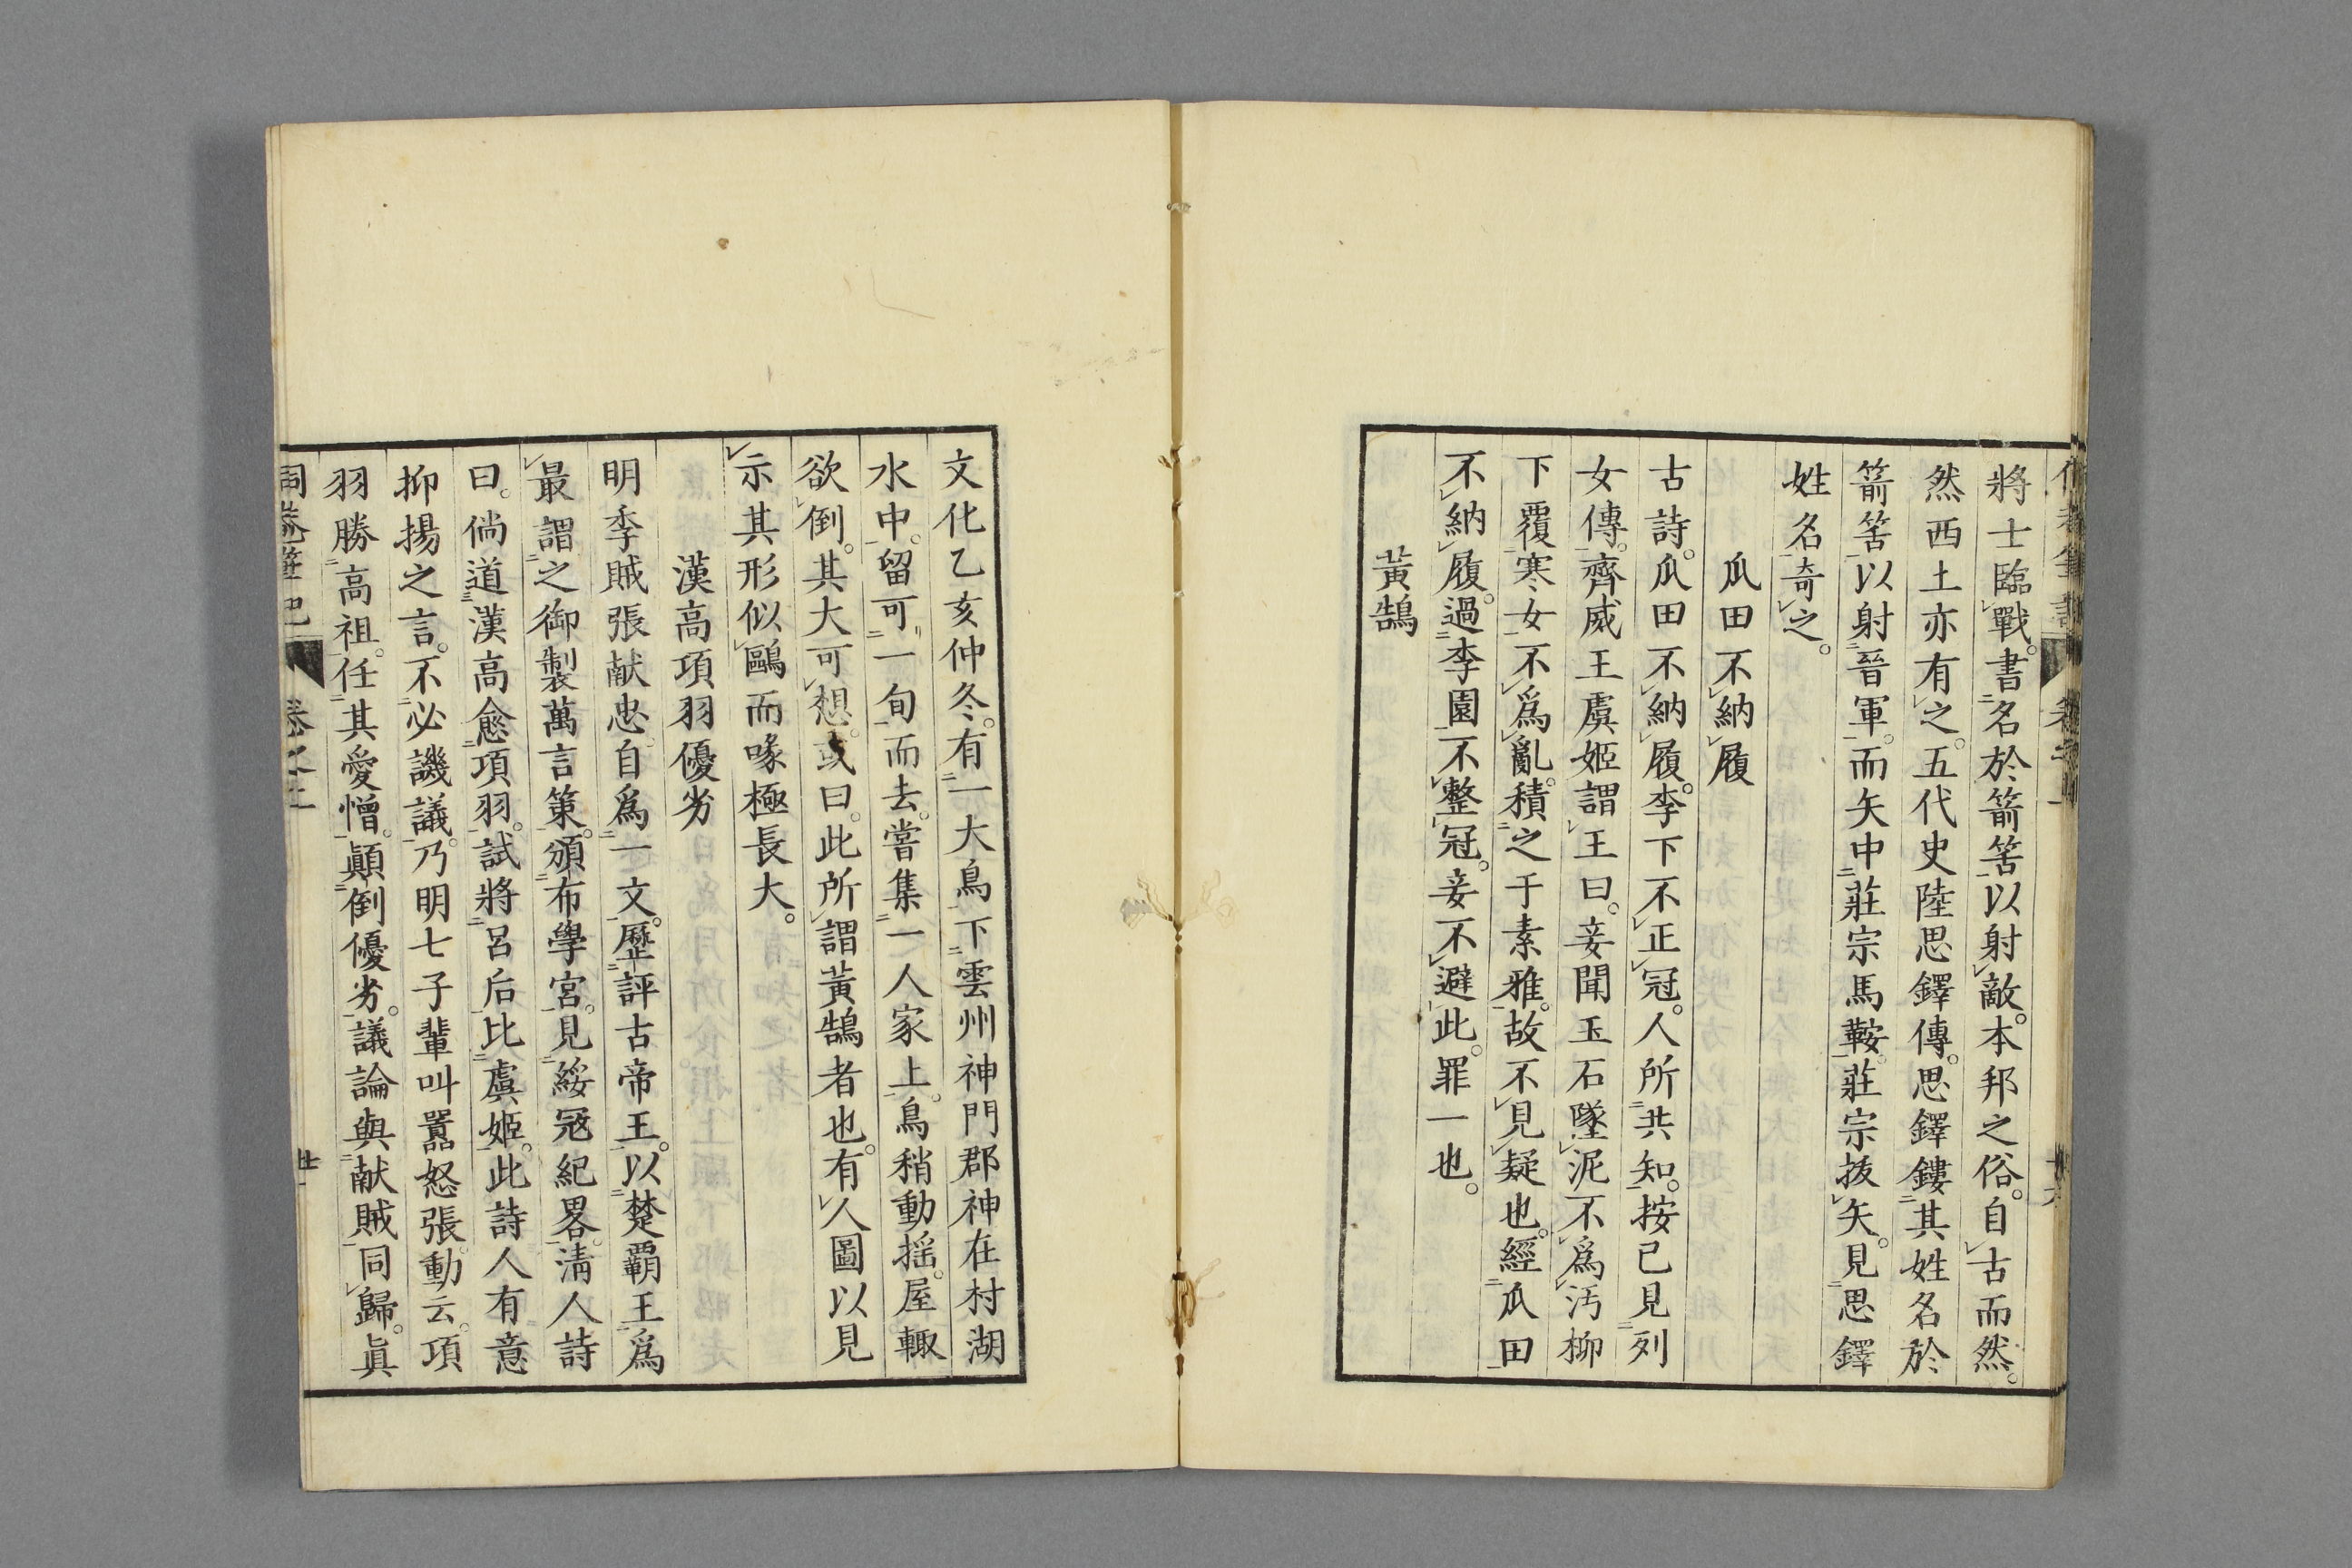 將士臨戰。書名於箭筈以射敵。本邦之俗。自古而然。
然西土亦有之。五代史陸思鐸傳。思鐸鏤其姓名於
箭筈以射晉軍。而矢中莊宗馬鞍。莊宗拔矢。見思鐸
姓名奇之。
瓜田不納履
古詩。瓜田不納履。李下不正冠。人所共知。按已見列
女傳。齊威王虞姬謂王曰。妾聞玉石墜泥不爲汚。柳
下覆寒女不爲亂。積之于素雅。故不見疑也。經瓜田
不納履。過李園不整冠。妾不避此。罪一也。
黃鵠
文化乙亥仲冬。有一大鳥下雲州神門郡神在村湖
水中。留可一旬而去。嘗集一人家上。鳥稍動搖。屋輙
欲倒。其大可想。或曰。此所謂黃鵠者也。有人圖以見
示其形似鷗而喙極長大。
漢高項羽優劣
明季賊張献忠自爲一文。歷評古帝王。以楚覇王爲
最謂之御製萬言策。頒布學宮。見綏冦紀畧。淸人詩
曰。倘道漢高愈項羽。試將呂后比虞姬。此詩人有意
抑揚之言。不必譏議。乃明七子輩叫囂怒張動云。項
羽勝高祖。任其愛憎。顚倒優劣。議論與献賊同歸。眞